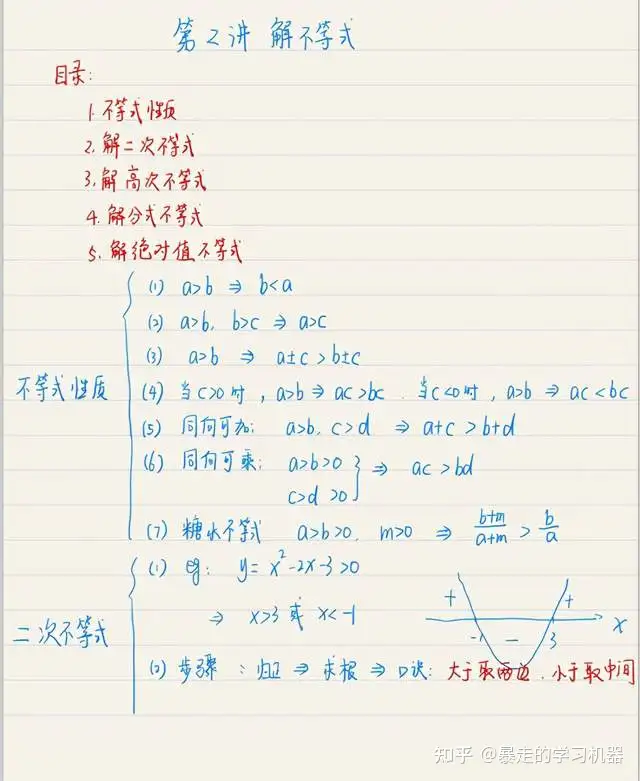 第2讲 解不等式
目录:
1. 不等式性质
2. 解二次不等式
3. 解高次不等式
4. 解分式不等式
5. 解绝对值不等式
不等式性质
(1) a>b ⇒ b<a
(2) a>b, b>c ⇒ a>c
(3) a>b ⇒ a±c>b±c
(4) 当c>0时, a>b⇒ac>bc. 当c<0时, a>b ⇒ ac<bc
(5) 同向可加: a>b, c>d ⇒ a+c>b+d
(6) 同向可乘: a>b>0
c>d>0 } ⇒ ac>bd
(7) 糖水不等式 a>b>0, m>0 ⇒ (b+m)/(a+m) > b/a
二次不等式
(1) eg: y=x²-2x-3>0
⇒ x>3 或 x<-1
+ - + -1 3 x
(2) 步骤: 归正 ⇒ 求根 ⇒ 口诀: 大于取两边, 小于取中间
知乎 @暴走的学习机器